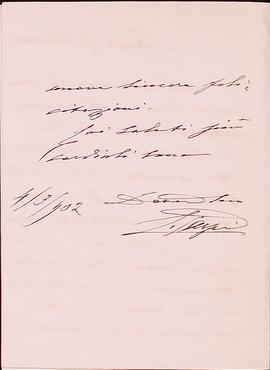 nuove sincere feli-
citazioni.
Coi saluti più
cordiali sono
4/3/902